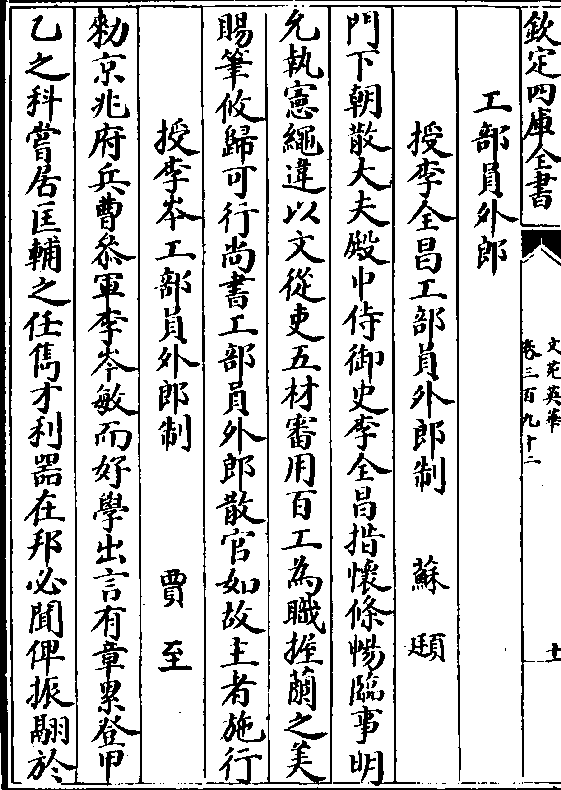 欽定四庫全書
文苑英華
卷三百九十二
十一
工部員外郎
授李全昌工部員外郎制 蘇頲
門下朝散大夫殿中侍御史李全昌措懷條暢臨事明
允執憲繩違以文從吏五材審用百工為職握蘭之美
賜筆攸歸可行尚書工部員外郎散官如故主者施行
授李岑工部員外郎制 賈至
勅京兆府兵曹叅軍李岑敏而好學出言有章累登甲
乙之科嘗居匡輔之任雋才利器在邦必聞俾振翮於